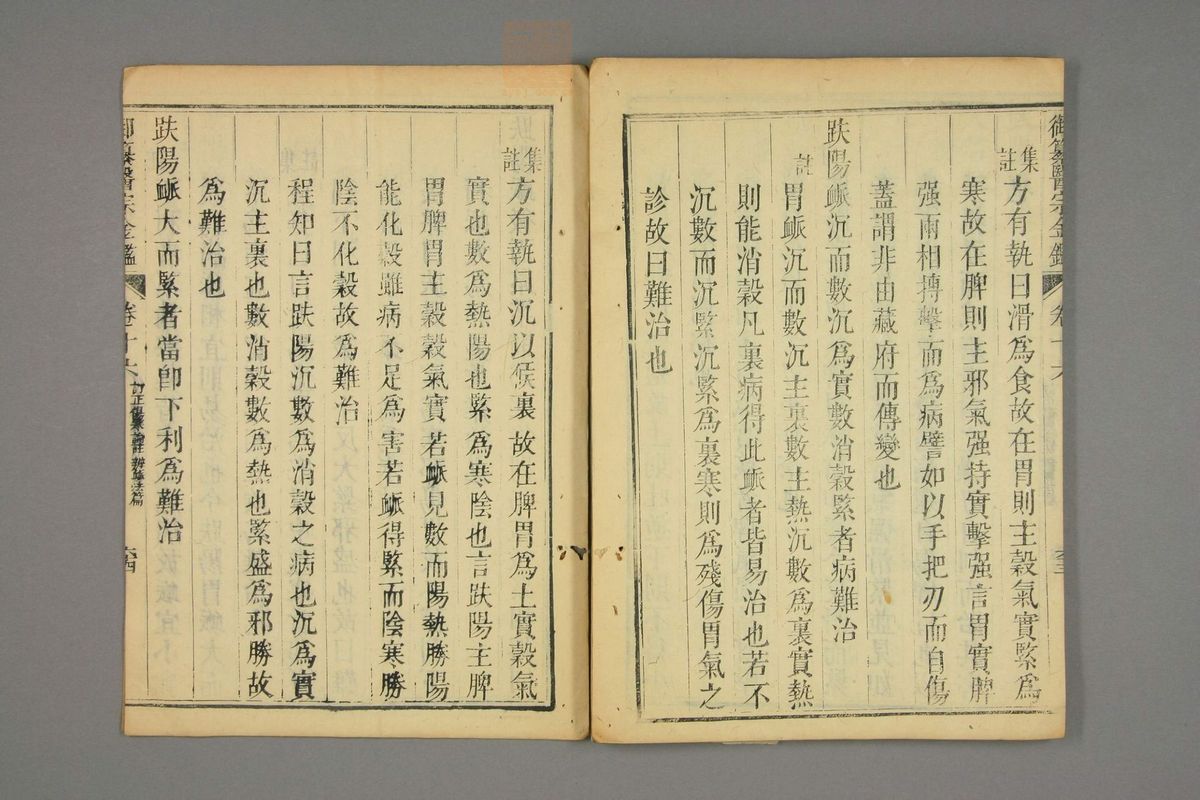 御纂醫宗金鑑 卷十六 六三
集註 方有執曰滑爲食故在胃則主穀氣實緊爲
寒故在脾則主邪氣强持實擊强言胃實脾
强兩相搏擊而爲病譬如以手把刃而自傷
蓋謂非由藏府而傳變也
趺陽衇沉而數沉爲實數消穀緊者病難治
註 胃衇沉而數沉主裏數主熱沉數爲裏實熱
則能消穀凡裏病得此衇者皆易治也若不
沉數而沉緊沉緊爲裏寒則爲殘傷胃氣之
診故曰難治也
集註 方有執曰沉以候裏故在脾胃爲土實穀氣
實也數爲熱陽也緊爲寒陰也言趺陽主脾
胃脾胃主穀穀氣實若衇見數而陽熱勝陽
能化穀雖病不足爲害若衇得緊而陰寒勝
陰不化穀故爲難治
程知曰言趺陽沉數爲消穀之病也沉爲實
沉主裏也數消穀數爲熱也緊盛爲邪勝故
爲難治也
趺陽衇大而緊者當卽下利爲難治
御纂醫宗金鑑 卷十六 訂正傷寒論註 辨脈法篇 六四